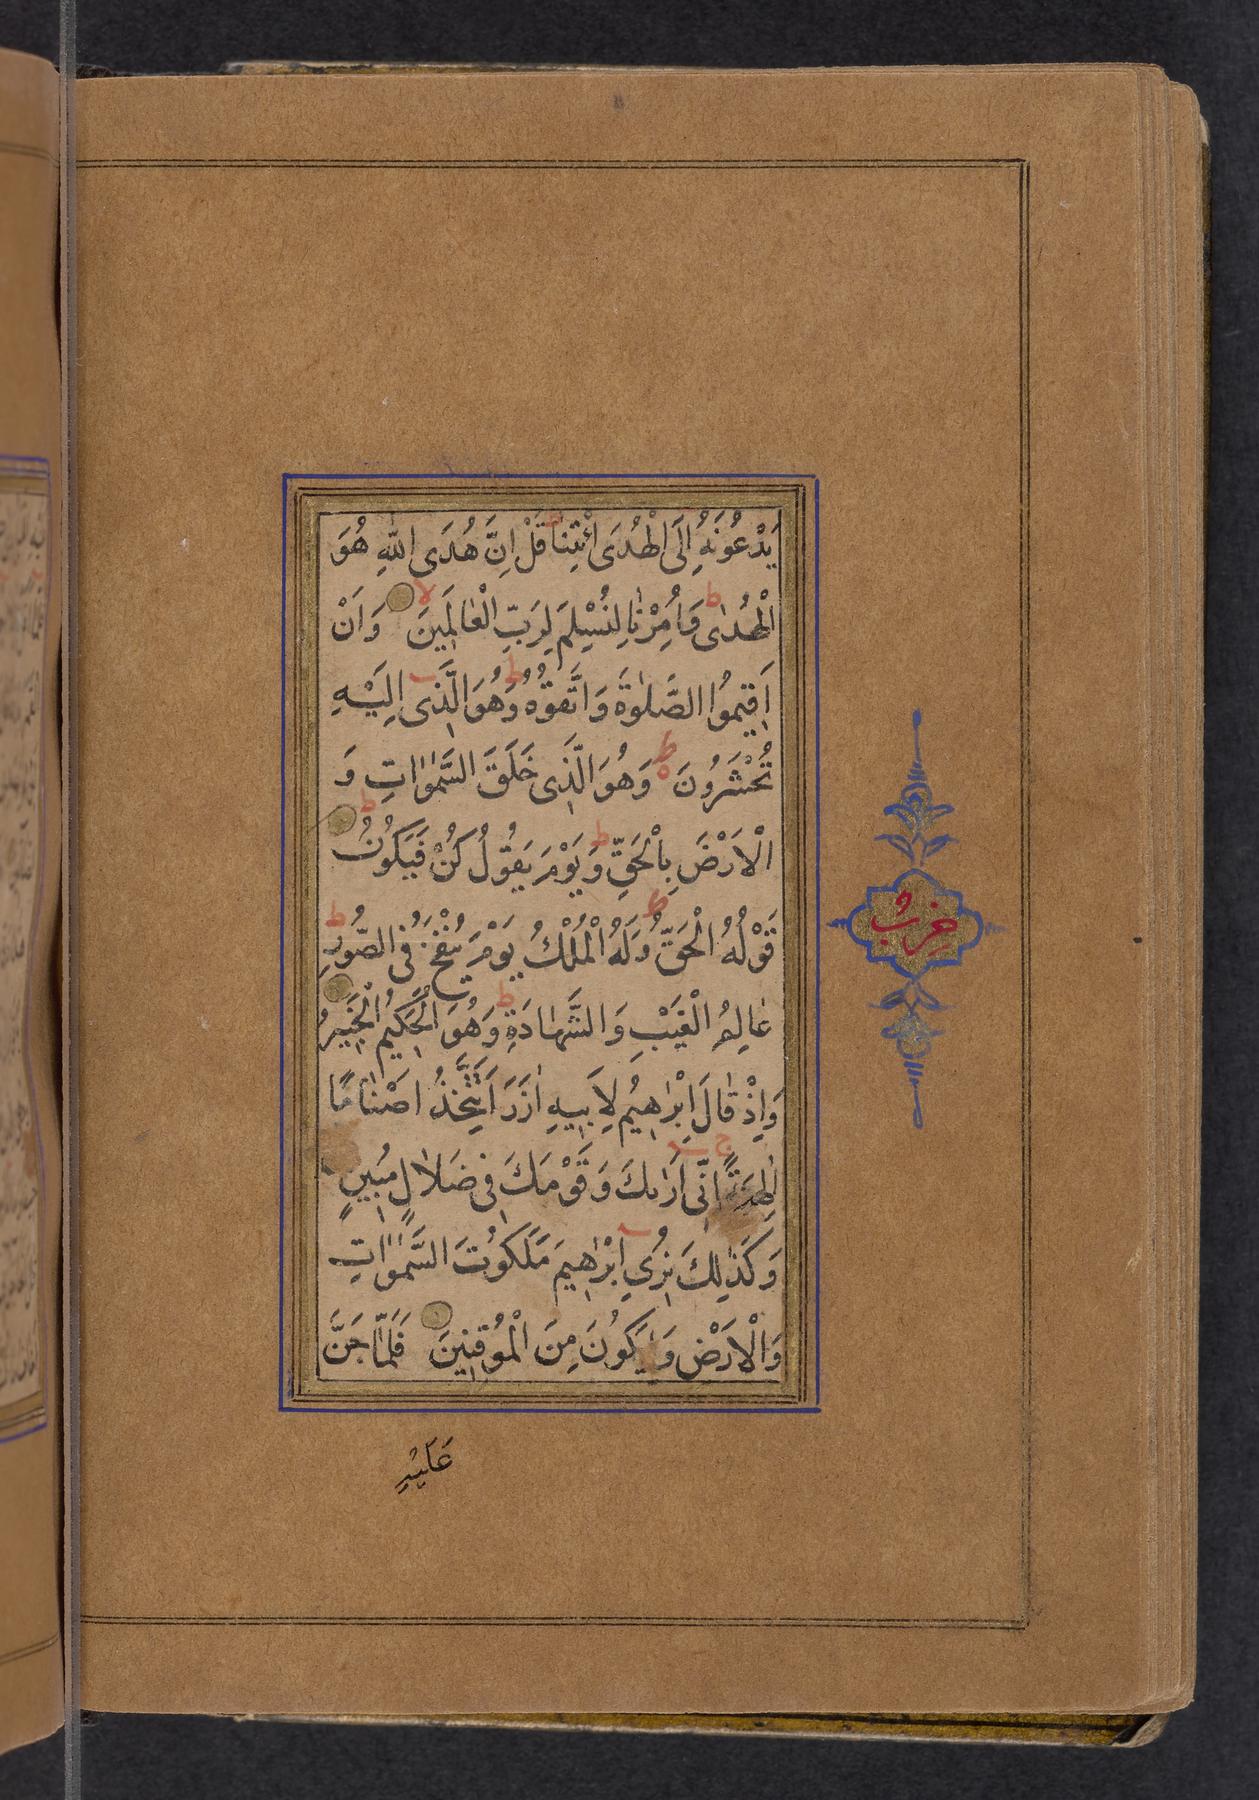 يَدْعُونَهُ اِلَى الْهُدَى ائْتِنَا قُلْ اِنَّ هُدَى اللّٰهِ هُوَ
الْهُدٰى وَاُمِرْنَا لِنُسْلِمَ لِرَبِّ الْعَالَمِينَ وَاَنْ
اَقِيمُوا الصَّلٰوةَ وَاتَّقُوهُ وَهُوَ الَّذِى اِلَيْهِ
تُحْشَرُونَ وَهُوَ الَّذِى خَلَقَ السَّمٰوَاتِ وَ
الْاَرْضَ بِالْحَقِّ وَيَوْمَ يَقُولُ كُنْ فَيَكُونُ
قَوْلُهُ الْحَقُّ وَلَهُ الْمُلْكُ يَوْمَ يُنْفَخُ فِى الصُّورِ
عَالِمُ الْغَيْبِ وَالشَّهَادَةِ وَهُوَ الْحَكِيمُ الْخَبِيرُ
وَاِذْ قَالَ اِبْرٰهِيمُ لِاَبِيهِ اٰزَرَ اَتَتَّخِذُ اَصْنَامًا
اٰلِهَةً اِنِّى اَرٰيكَ وَقَوْمَكَ فِى ضَلَالٍ مُبِينٍ
وَكَذٰلِكَ نُرِى اِبْرٰهِيمَ مَلَكُوتَ السَّمٰوَاتِ
وَالْاَرْضِ وَلِيَكُونَ مِنَ الْمُوقِنِينَ فَلَمَّا جَنَّ
عَلَيْهِ
حزب